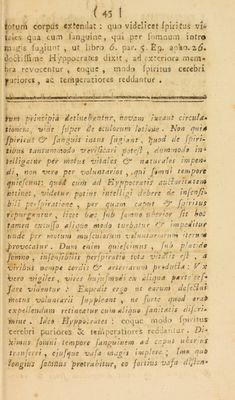 ( 45 )
totum corpus extendat : quo videlicet spiritus vi-
tales qua cum sanguine, qui per somnum intro
magis fugiunt, ut libro 6. par. 5. Ep. apho. 26.
doctissime Hyppocrates dixit, ad exteriora mem-
bra revocentur, eoque, modo spiritus cerebri
puriores, ac temperatiores reddantur.
rum principia detinebuntur, novam iuvant circula-
tionem, vide super de oculorum lotione. Non quia
spiritus & sanguis intus fugiant, quod de spiri-
tibus tantummodo verificari potest, dummodo in-
telligatur per motus vitales & naturales impen-
di, non vero per voluntarios, qui somni tempore
quiescunt: quod cum ad Hyppocratis auctoritatem
attinet, videtur potius intelligi debere de insensi-
bili perspiratione, per quam caput & spiritus
repurgantur, licet hæc sub somno uberior sit hoc
tamen excusso aliquo modo turbatur & impeditur
unde per motum muscularum voluntarium iterum
provocatur. Dum enim quiescimus, sub placido
somno, insensibilis perspiratio tota vitalis est, a
viribus nempe cordis & arteriarum producta: Ve-
ro vigiles, vires huiusmodi ex aliqua parte ces-
sare videntur: Expedit ergo ut earum defectui
motus voluntarii suppleant, ne forte quod erat
expellendum retineatur cum aliquo sanitatis discri-
mine. Ideo Hyppocrates: eoque modo spiritus
cerebri puriores & temperatiores reddantur. Di-
ximus somni tempore sanguinem ad caput uberius
transferri, ejusque vasa magis implere; Imo quo
longius somnus protrahitur, eo fortius vasa disten-